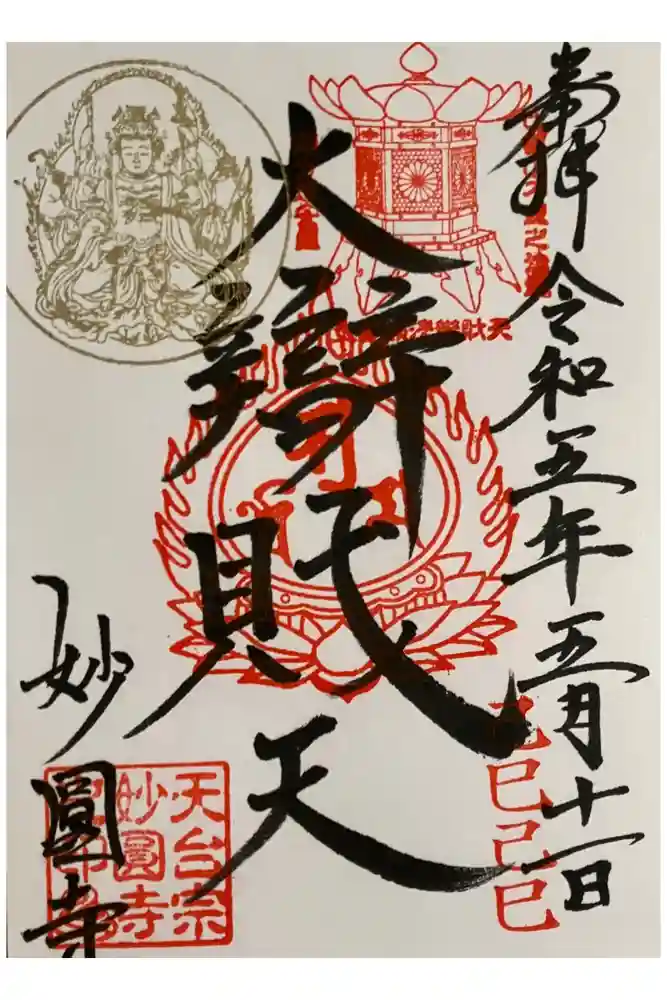 奉拝 令和五年五月十一日
己巳己巳
大辯財天
妙圓寺
天台宗
妙圓寺